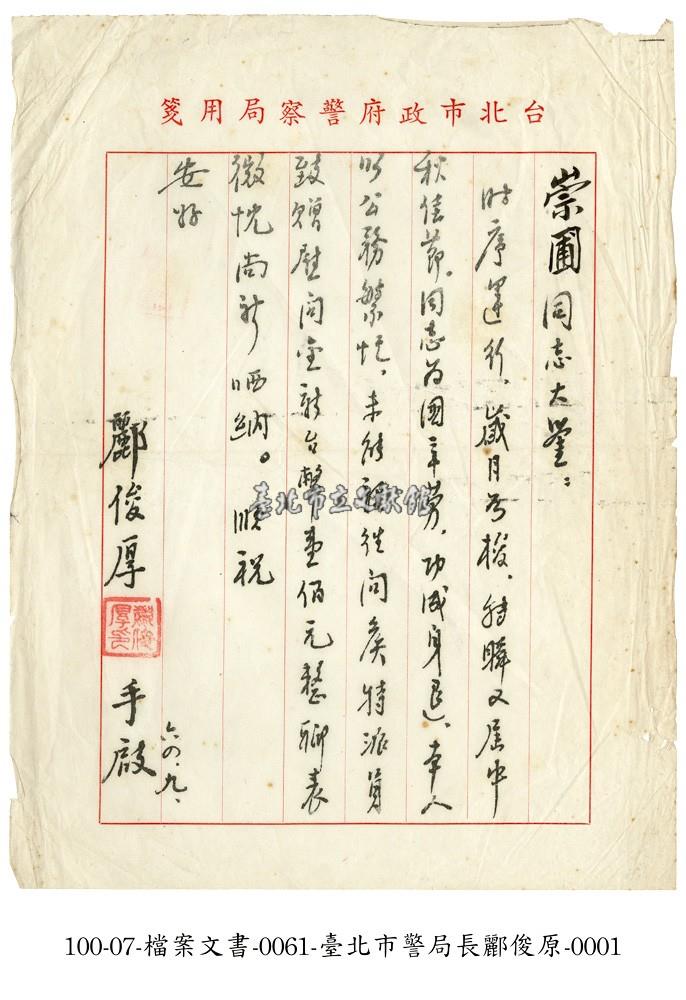 台北市政府警察局用箋
崇圃同志大鑒：
時序運行，歲月為梭，轉瞬又屆中
秋佳節。同志為國辛勞，功成身退，本人
以公務繁忙，未能親往問候特派員
致贈慰問金新台幣壹佰元整聊表
微忱尚祈哂納。順祝
安好
六四.九.
酈俊厚 手啟
酈俊厚印
臺北市立文獻館
100-07-檔案文書-0061-臺北市警局長酈俊原-0001